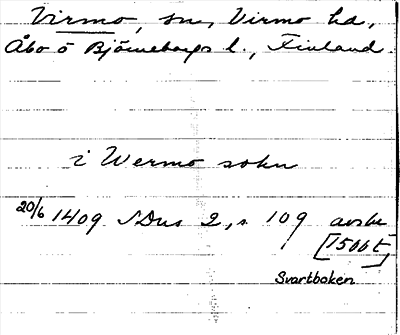 Virmo, sn, Virmo hd,
Åbo o Björneborgs l., Finland.
i Wermo sokn
20/6 1409 SDns 2, s 109 avskr
[1500 t]
Svartboken